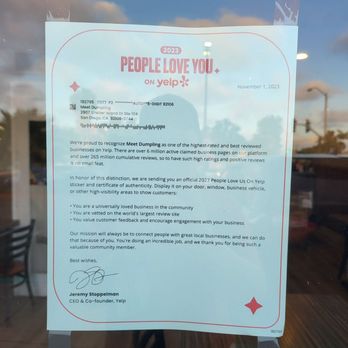 2023
PEOPLE LOVE YOU
ON yelp
November 1, 2023
Meet Dumpling
San Diego, CA
We're proud to recognize Meet Dumpling as one of the highest-rated and best reviewed
businesses on Yelp. There are over 6 million active claimed business pages on our platform
and over 265 million cumulative reviews, so to have such high ratings and positive reviews
is no small feat.
In honor of this distinction, we are sending you an official 2023 People Love Us On Yelp
sticker and certificate of authenticity. Display it on your door, window, business vehicle,
or other high-visibility areas to show customers:
• You are a universally loved business in the community
• You are vetted on the world's largest review site
• You value customer feedback and encourage engagement with your business
Our mission will always be to connect people with great local businesses, and we can do
that because of you. You're doing an incredible job, and we thank you for being such a
valuable community member.
Best wishes,
Jeremy Stoppelman
CEO & Co-founder, Yelp